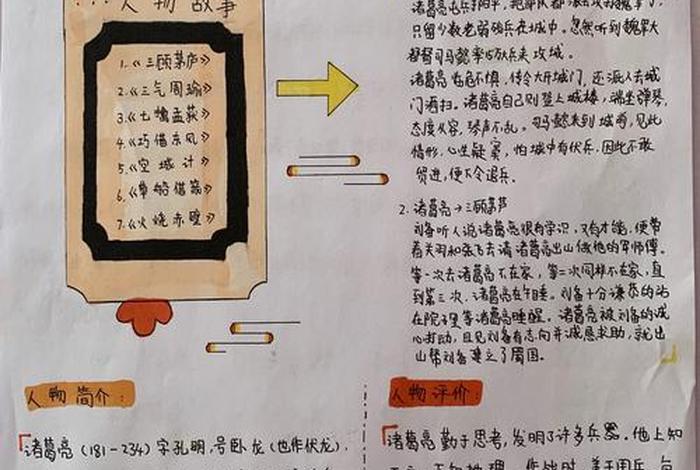 人物故事
1.《三顾茅庐》
2.《三气周瑜》
3.《七擒孟获》
4.《巧借东风》
5.《空城计》
6.《草船借箭》
7.《火烧赤壁》
诸葛亮屯兵阳平，
只留少数老弱残兵在城中。忽然听到魏军大
都督司马懿率15万兵来攻城。
诸葛亮临危不惧，传令大开城门，还派人去城
门洒扫。诸葛亮自己则登上城楼，端坐弹琴，
态度从容，琴声不乱。司马懿来到城前，见此
情形，心生疑窦，怕城中有伏兵，因此不敢
贸进，便下令退兵。
2. 诸葛亮→三顾茅庐
刘备听人说诸葛亮很有学识，又有才能，便带
着关羽和张飞去请诸葛亮出山做他的军师傅。
第一次去诸葛亮不在家，第二次同样不在家，直
到第三次，诸葛亮在午睡。刘备十分谦恭的站
在院子里等诸葛亮睡醒。诸葛亮被刘备的诚
心打动，且见刘备有志向并诚恳求助，就出
山帮刘备建立了蜀国。
人物简介：
诸葛亮（181-234）字孔明，号卧龙（也作伏龙），
人物评价：
诸葛亮勤于思考，发明了许多兵器。他上知